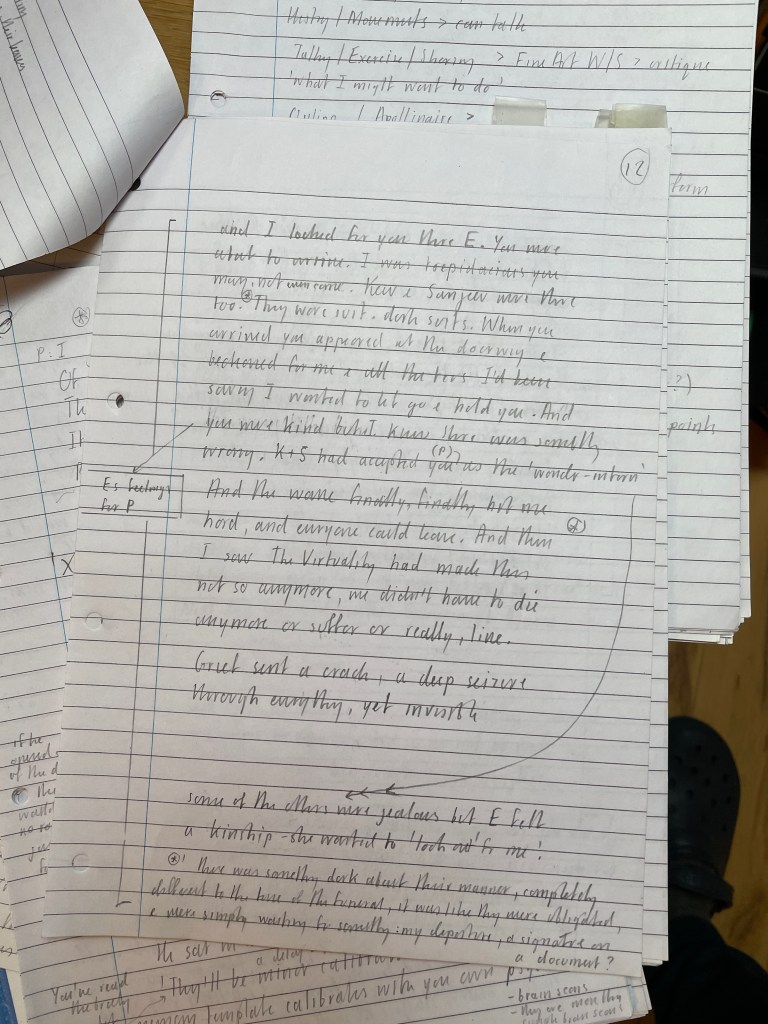 History / Movements > can talk
Talky / Exercise / Sharing > Fine Art W/S > critique
'what I might want to do'
/ Apollinaire >
form
?)
points
12
and I looked for you there E. You were
about to arrive. I was trepidacious you
may not even come. Kew & Sanjeev were there
too. ⊛ They wore suit. dark suits. When you
arrived you appeared at the doorway &
beckoned for me & all the tears I'd been
saving I wanted to let go & hold you. And
you were kind but I knew there was somethg
wrong. K+S had accepted you (P) as the 'wonder-intern'
Es feelings
for P
And the wave finally, finally hit me
hard, and everyone could leave. And then
I saw The Virtuality had made this
not so anymore, we didn't have to die
anymore or suffer or really, live.
Grief sent a crack, a deep seizure
through everythg, yet invisible
some of the others were jealous but E felt
a kinship - she wanted to 'look out' for me!
⊛ there was somethg dark about their manner, completely
different to the tone of the funeral, it was like they were obligated,
& were simply waiting for somethg: my departure, a signature on
a document?
P: I
Of
Th
If
X
if the
of the d
the
You've read
the body
The sat in
a delay
'They'll be minor calibra
template calibrates with you own
- brain scans
- they are more than
simple brain scans